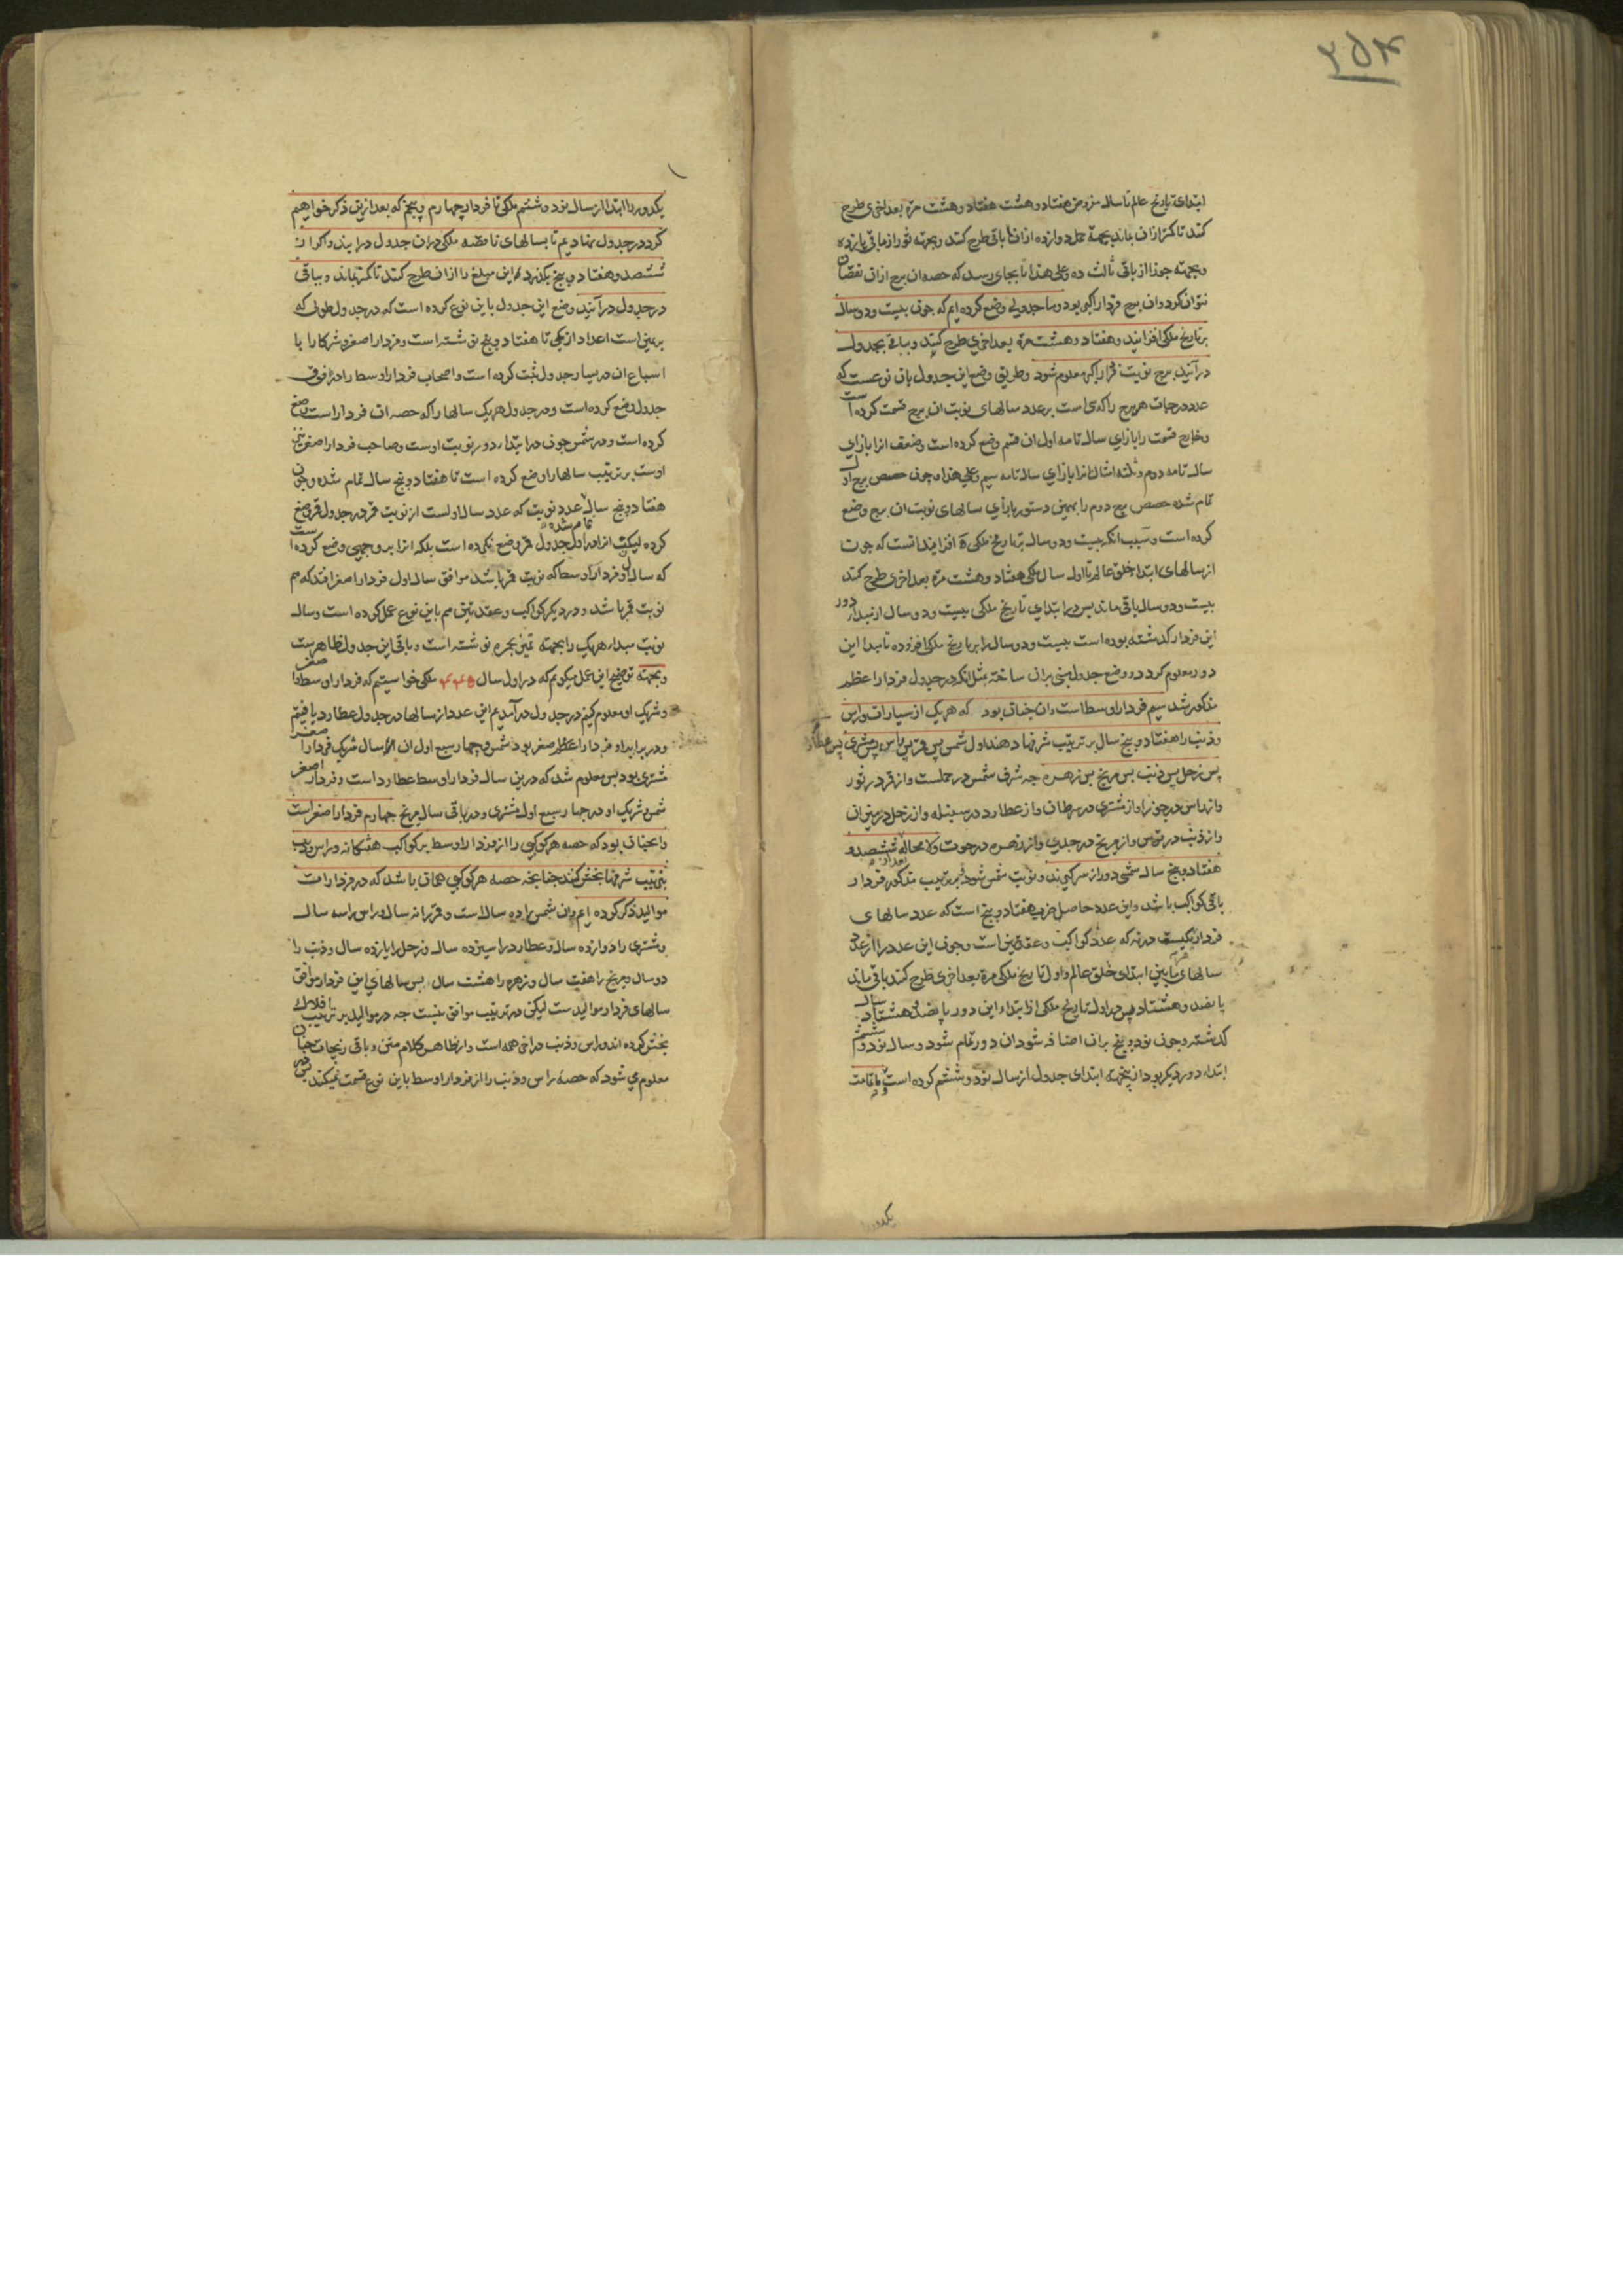 ۳۵۴
ابتدای تاریخ عالم تا سال مفروض هفتاد و هشت هفتاد و هشت مرة بعد اخری طرح
کنند تا کمتر ازان بماند بجهة حمل دوازده ازان باقی طرح کنند و بجهة ثور از مابقی یازده
و بجهة جوزا از باقی ثالث ده و علی هذا تا بجای رسد که حصه ان برج ازان نقصان
نتوان کرد و ان برج فردار اکبر بود و ما جدولی وضع کرده ایم که چون بیست و دو سال
بر تاریخ ملکی افزایند و هفتاد و هشت مرة بعد اخری طرح کنند و بباقی بجدول
درآیند برج نوبت فردار اکبر معلوم شود و طریق وضع این جدول بان نوعست که
عدد درجات هر برج را که ی است بر عدد سالهای نوبت ان برج قسمت کرده است
و خارج قسمت را بازای سال تامه اول ان قسم وضع کرده است و ضعف انرا بازای
سال تامه دوم و ثلثه امثال انرا بازای سال تامه سیم و علی هذا و چون حصص برج اول
تمام شده حصص برج دوم را بهمین دستور بازای سالهای نوبت ان برج وضع
کرده است و سبب انکه بیست و دو سال بر تاریخ ملکی می افزایند انست که چون
از سالهای ابتدا خلق عالم تا اول سال ملکی هفتاد و هشت مرة بعد اخری طرح کنند
بیست و دو سال باقی ماند پس در ابتدای تاریخ ملکی بیست و دو سال از مبدا دور
این فردار کذشته بوده است بیست و دو سال را بر تاریخ ملکی افزوده تا مبدا این
دور معلوم کردد و وضع جدول مبنی بران ساخته مثل انکه در جدول فردار اعظم
مذکور شد سیم فردار اوسط است و ان چنان بود که هر یک از سیارات و راس
و ذنب را هفتاد و پنج سال بر ترتیب شرفها دهند اول شمس پس قمر پس راس پس مشتری پس عطارد
پس زحل پس ذنب پس مریخ پس زهره چه شرف شمس در حملست و از قمر در ثور
و از راس در جوزا و از مشتری در سرطان و از عطارد در سنبله و از زحل در میزان
و از ذنب در قوس و از مریخ در جدی و از زهره در حوت و لا محاله ششصد و
هفتاد و پنج سال شمسی دور از سر کیرند و نوبت شمس شود بعد ازو بترتیب مذکور فردار
باقی کواکب باشد و این عدد حاصل ضرب هفتاد و پنج است که عدد سالهای
فردار یکیست در نه که عدد کواکب و عقدتین است و چون این عدد را از عدد
سالهای مابین ابتدای خلق عالم و اول تاریخ ملکی مرة بعد اخری طرح کنند باقی ماند
پانصد و هشتاد پس در اول تاریخ ملکی از ابتداء این دور پانصد و هشتاد سال
کذشته و چون نود و پنج بران اضافه شود ان دور تمام شود و سال نود و ششم
ابتداء دور دیکر بود ازینجهة ابتدای جدول از سال نود و ششم کرده است و ما تا مت
یکدور
یکدور را ابتدا از سال نود و ششم ملکی تا فردار چهارم و پنجم که بعد ازین ذکر خواهیم
کرد در جدول نهادیم تا بسالهای ناقصه ملکی دران جدول درایند و اکر از
ششصد و هفتاد و پنج بکذرد این مبلغ را ازان طرح کنند تا کمتر بماند و بباقی
در جدول درآیند وضع این جدول باین نوع کرده است که در جدول طولی که
بر یمین است اعداد از یکی تا هفتاد و پنج نوشته است و فردار اصغر و شرکا را با
اسباع ان در یسار جدول ثبت کرده است و اصحاب فردار اوسط را در فوق
جدول وضع کرده است و در جدول هر یک سالها را که حصه ان فردار است وضع
کرده است و در شمس چون در ابتداء دور نوبت اوست و صاحب فردار اصغر نیز
اوست بر ترتیب سالها را وضع کرده است تا هفتاد و پنج سال تمام شده و چون
هفتاد و پنج سال تمام شده عدد نوبت که عدد سال اولست از نوبت قمر در جدول قمر وضع
کرده لیکن انرا در اول جدول قمر وضع نکرده است بلکه انرا بر وجهی وضع کرده است
که سال اول فردار اوسط که نوبت قمر باشد موافق سال اول فردار اصغر افتد که هم
نوبت قمر باشد و در دیکر کواکب و عقدتین هم باین نوع عمل کرده است و سال
نوبت مبداء هر یک را بجهة تمیز بحمره نوشته است و باقی این جدول ظاهرست
و بجهة توضیح این عمل میکویم که در اول سال ۴۴۵ ملکی خواستیم که فردار اوسط و اصغر
و شریک او معلوم کنیم در جدول درآمدیم این عدد از سالها در جدول عطارد یافتیم
و در برابر او فردار اصغر بود شمس و چهار سبع اول ان سال شریک فردار اصغر
مشتری بود پس معلوم شد که درین سال فردار اوسط عطارد است و فردار اصغر
شمس و شریک او در چهار سبع اول مشتری و در باقی سال مریخ چهارم فردار اصغر است
و انچنان بود که حصه هر کوکبی را از فردار اوسط بر کواکب هفتکانه و راس و ذنب
بترتیب شرفها بخش کنند چنانچه حصه هر کوکبی همان باشد که در فردارات
موالید ذکر کرده ایم و ان شمس را ده سال است و قمر را نه سال و راس را سه سال
و مشتری را دوازده سال و عطارد را سیزده سال و زحل را یازده سال و ذنب را
دو سال و مریخ را هفت سال و زهره را هشت سال پس سالهای این فردار موافق
سالهای فردار موالیدست لیکن در ترتیب موافق نیست چه در موالید بر ترتیب افلاک
بخش کرده اند و راس و ذنب در اخر همه است و از ظاهر کلام متن و باقی زیجات چنان
معلوم می شود که حصه راس و ذنب را از فردار اوسط باین نوع قسمت نمیکنند پس در